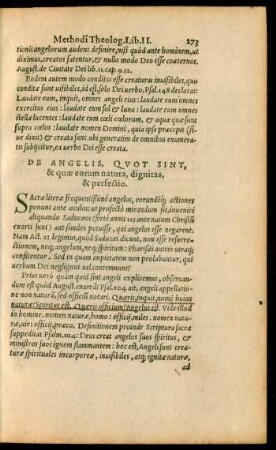 Methodi Theolog. Lib. II. 273
tionis angelorum audent definire, nisi quòd ante hominem, ut
diximus, creatos fatentur, & nullo modo Deo esse coaternos.
August. de Ciuitate Dei lib. 11. cap. 9. 12.
Eodem autem modo esse creaturas inuisibiles, quo
conditæ sunt uisibiles, id est Dei uerbo. Psal. 148 declarat:
Laudate eum, inquit, omnes angeli eius: laudate eum omnes
exercitus eius: laudate eum sol & luna: laudate eum omnes
stellæ lucentes: laudate eum cœli cœlorum, & aquæ quæ sunt
supra cœlos: laudate nomen Domini, quia ipse præcepit (si-
ue dixit) & creata sunt: ubi generatim de omnibus enumera-
tis subijcitur, ex uerbo Dei esse creata.
DE ANGELIS, QVOT SINT,
& quæ eorum natura, dignitas,
& perfectio.
SAcræ literæ frequentissimè angelos, eorundemque actiones
ponunt ante oculos: ut profectò mirandum sit, inueniri
aliquando Saducæos (fortè annis ante natum Christum
exorti sunt) aut similes potuisse, qui angelos esse negarent.
Nam Act. 23 legimus, quòd Saducæi dicunt, non esse resurre-
ctionem, neque angelum, neque spiritum: Pharisæi autem utraque
confitentur. Sed in quantum eam opinionem non probabant, qui
uerbum Dei negligunt aut contemnunt?
Priùs uerò quàm quid sint angeli explicemus, obseruan-
dum est quod August. enarrat Psal. 104. ait, angeli appellatio-
nem non naturæ, sed officij notare. Quæris, inquit, nomen huius
naturæ? Spiritus est. Quæris officium? Angelus est. Vide illud
in homine. nomen naturæ, homo: officij, miles. nomen natu-
ræ, uir: officij, præco. Definitionem proinde Scriptura sacra
suppeditat Psalm. 104: Deus creat angelos suos spiritus, &
ministros suos ignem flammantem: hoc est, Angeli sunt crea-
turæ spirituales incorporeæ, inuisibiles, atque igniteæ naturæ,
ad